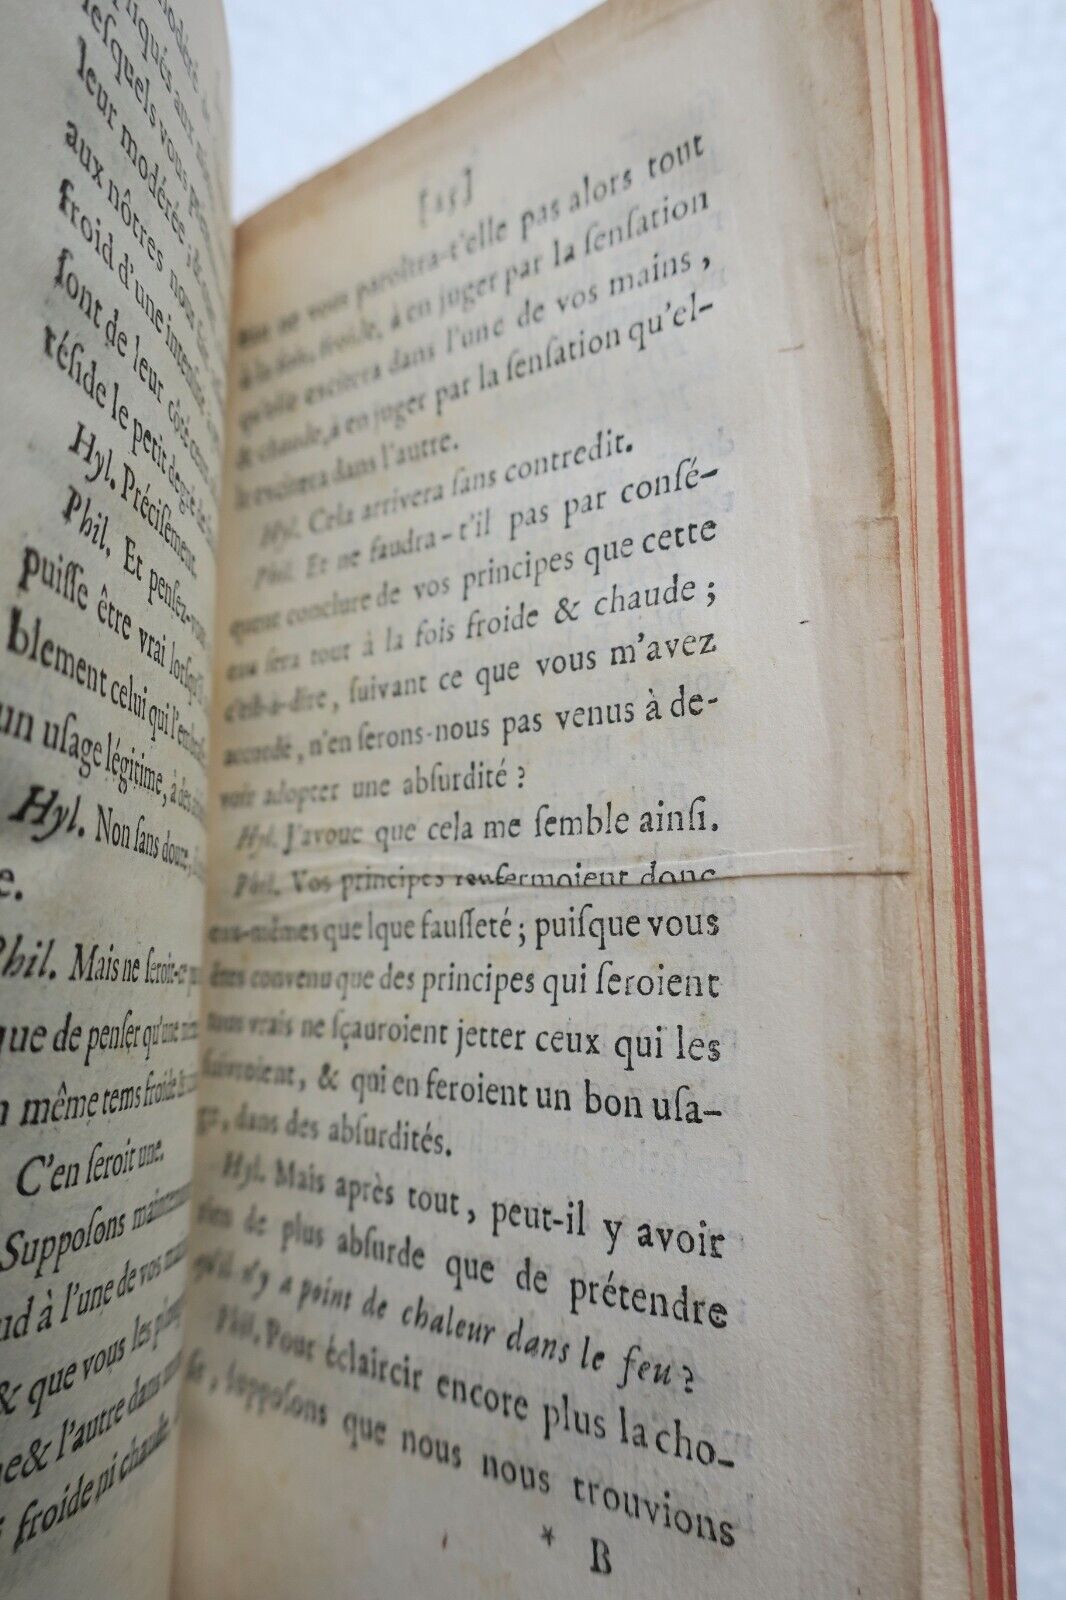 lesquels vous
leur modérée ; &
aux nôtres nous
froid d'une intensité
ſont de leur côté
réſide le petit degré de
Hyl. Préciſément.
Phil. Et penſez-vous
puiſſe être vrai lorſqu'il
blement celui qui l'embraſſe
un uſage légitime, à des
Hyl. Non ſans doute,
e.
Phil. Mais ne ſeroit-ce
que de penſer qu'une
même tems froide &
C'en ſeroit une.
Suppoſons maintenant
ud à l'une de vos mains
& que vous les
& l'autre dans
froide ni chaude.
[25]
ne vous paroîtra-t'elle pas alors tout
à la fois, froide, à en juger par la ſenſation
qu'elle excitera dans l'une de vos mains,
& chaude, à en juger par la ſenſation qu'el-
le excitera dans l'autre.
Hyl. Cela arrivera ſans contredit.
Phil. Et ne faudra-t'il pas par conſé-
quent conclure de vos principes que cette
eau ſera tout à la fois froide & chaude ;
c'eſt-à-dire, ſuivant ce que vous m'avez
accordé, n'en ſerons-nous pas venus à de-
voir adopter une abſurdité ?
Hyl. J'avoue que cela me ſemble ainſi.
Phil. Vos principes renfermoient donc
eux-mêmes quelque fauſſeté ; puiſque vous
êtes convenu que des principes qui ſeroient
tous vrais ne ſçauroient jetter ceux qui les
ſuivroient, & qui en feroient un bon uſa-
ge, dans des abſurdités.
Hyl. Mais après tout, peut-il y avoir
rien de plus abſurde que de prétendre
qu'il n'y a point de chaleur dans le feu ?
Phil. Pour éclaircir encore plus la cho-
ſe, ſuppoſons que nous nous trouvions
* B